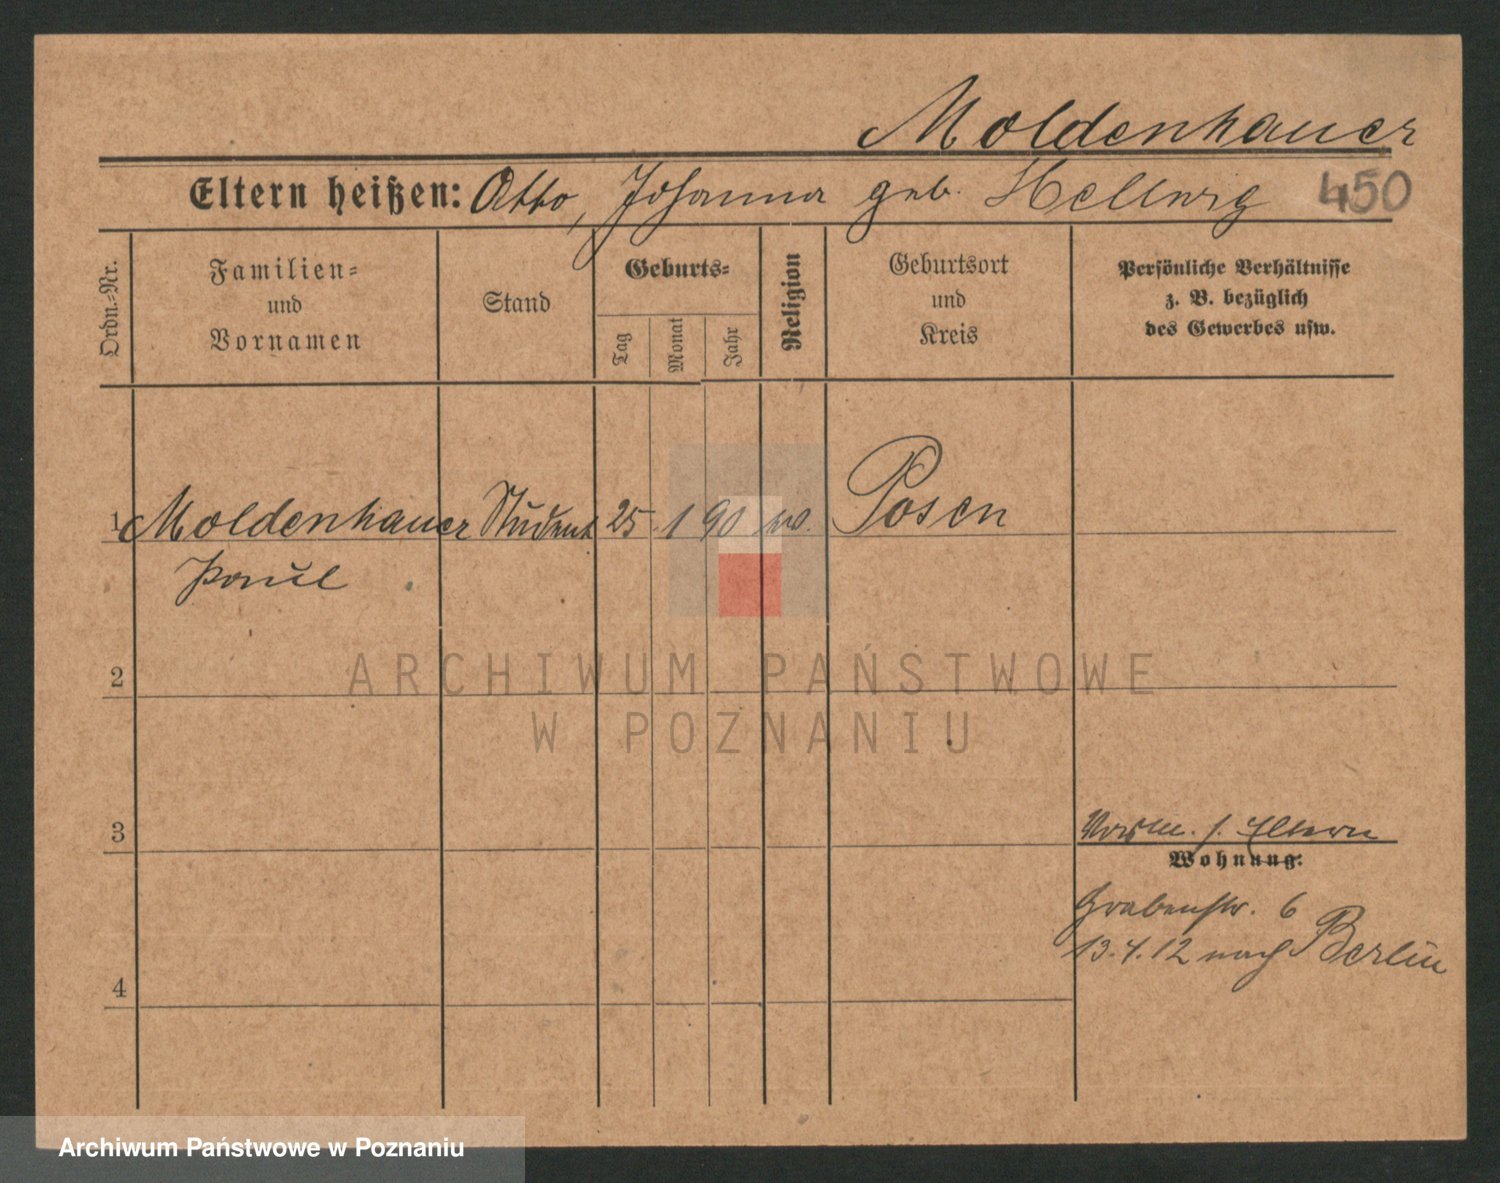 Moldenhauer
Eltern heißen: Otto, Johanna geb. Hellwig 450
Ordn.-Nr.
Familien-
und
Vornamen
Stand
Geburts-
Tag
Monat
Jahr
Religion
Geburtsort
und
Kreis
Persönliche Verhältnisse
z. B. bezüglich
des Gewerbes usw.
1 Moldenhauer Student 25 1 90 Posen
Paul
2
ARCHIWUM PAŃSTWOWE
W POZNANIU
3
s. Eltern
Wohnung:
Grabenstr. 6
13.4.12 nach Berlin
4
Archiwum Państwowe w Poznaniu